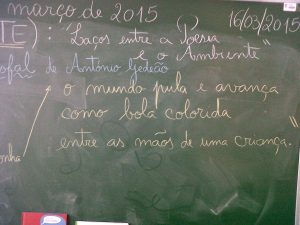 março de 2015 16/03/2015
TE) : "Laços entre a Poesia
e o Ambiente"
ofal de António Gedeão
o mundo pula e avança
como bola colorida
entre as mãos de uma criança.
onha